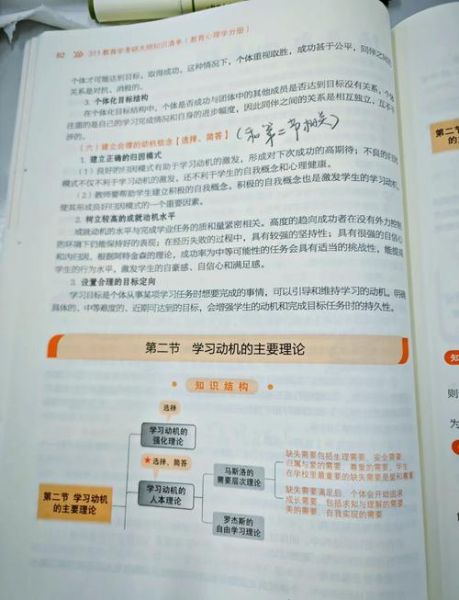 82 311教育学考研大纲知识清单（教育心理学分册）
个体才可能达到目标，取得成功，这种情况下，个体重视取胜，成功甚于公平，同伴之间的
关系是对抗、消极的。
3. 个体化目标结构
在个体化目标结构中，个体是否成功与团体中的其他成员是否达到目标没有关系，个体
注重的是自己的学习完成情况和自身的进步幅度，因此同伴之间的关系是相互独立，互不干
涉的。
（六）建立合理的动机概念【选择、简答】（和第二节相关）
1. 建立正确的归因模式
（1）良好的归因模式有助于学习动机的激发，形成对下次成功的高期待；不良的归因
模式不仅不利于学习动机的激发，还不利于学生的自我概念和心理健康。
（2）教师要帮助学生建立积极的自我概念。积极的自我概念也是激发学生的学习动机，
使其形成良好归因模式的一个重要因素。
2. 树立较高的成就动机水平
成就动机的水平与完成学业任务的质和量紧密相关。高度的趋向成功者在没有外力控制
的环境下仍能保持好的表现；在经历失败的过程中，具有较强的坚持性；具有很强的自信心
和内归因。根据阿特金森的理论，成功率为中等可能性的任务会具有适当的挑战性，能提高
学生的行为水平，激发学生的自豪感、自信心和满足感。
3. 设置合理的目标定向
学习目标是个体从事某项学习任务时想要完成的事情，可以引导和维持学习的动机。明确
具体的、中等难度的、近期可达到的目标，会增强学生的动机和完成目标任务时的持久性。
第二节 学习动机的主要理论
知识结构
选择
学习动机的
强化理论
★选择、简答
第二节 学习动机
的主要理论
学习动机的
人本理论
马斯洛的
需要层次理论
缺失需要包括生理需要、安全需要、
归属与爱的需要、尊重的需要，学生
在学校里最重要的缺失需要是爱和尊重
缺失需要满足后，个体会开始追求
成长需要，包括求知与理解的需要、
美的需要、自我实现的需要
罗杰斯的
自由学习理论
第二节
的主
知
则
为